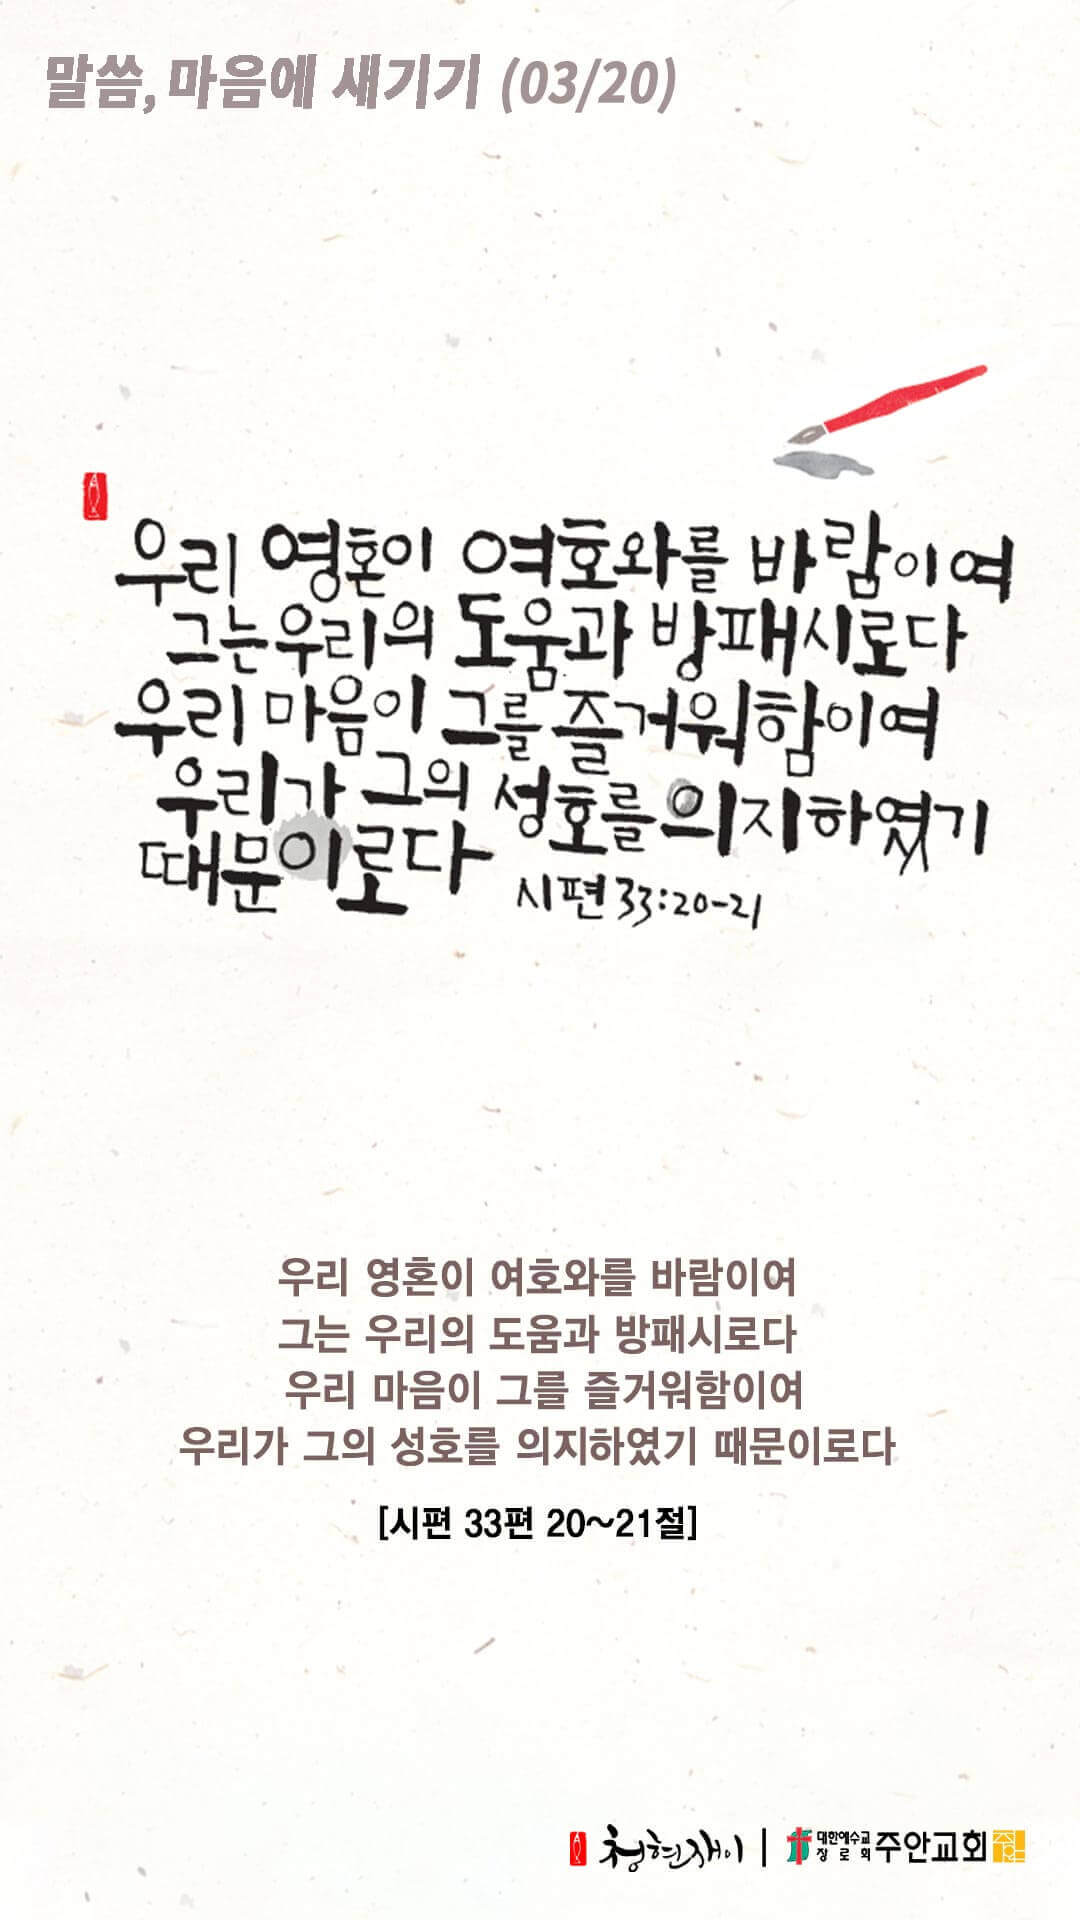 말씀, 마음에 새기기 (03/20)
우리 영혼이 여호와를 바람이여
그는 우리의 도움과 방패시로다
우리 마음이 그를 즐거워함이여
우리가 그의 성호를 의지하였기
때문이로다 시편 33:20-21
우리 영혼이 여호와를 바람이여
그는 우리의 도움과 방패시로다
우리 마음이 그를 즐거워함이여
우리가 그의 성호를 의지하였기 때문이로다
[시편 33편 20~21절]
청현재이 | 대한예수교
장로회 주안교회 주안